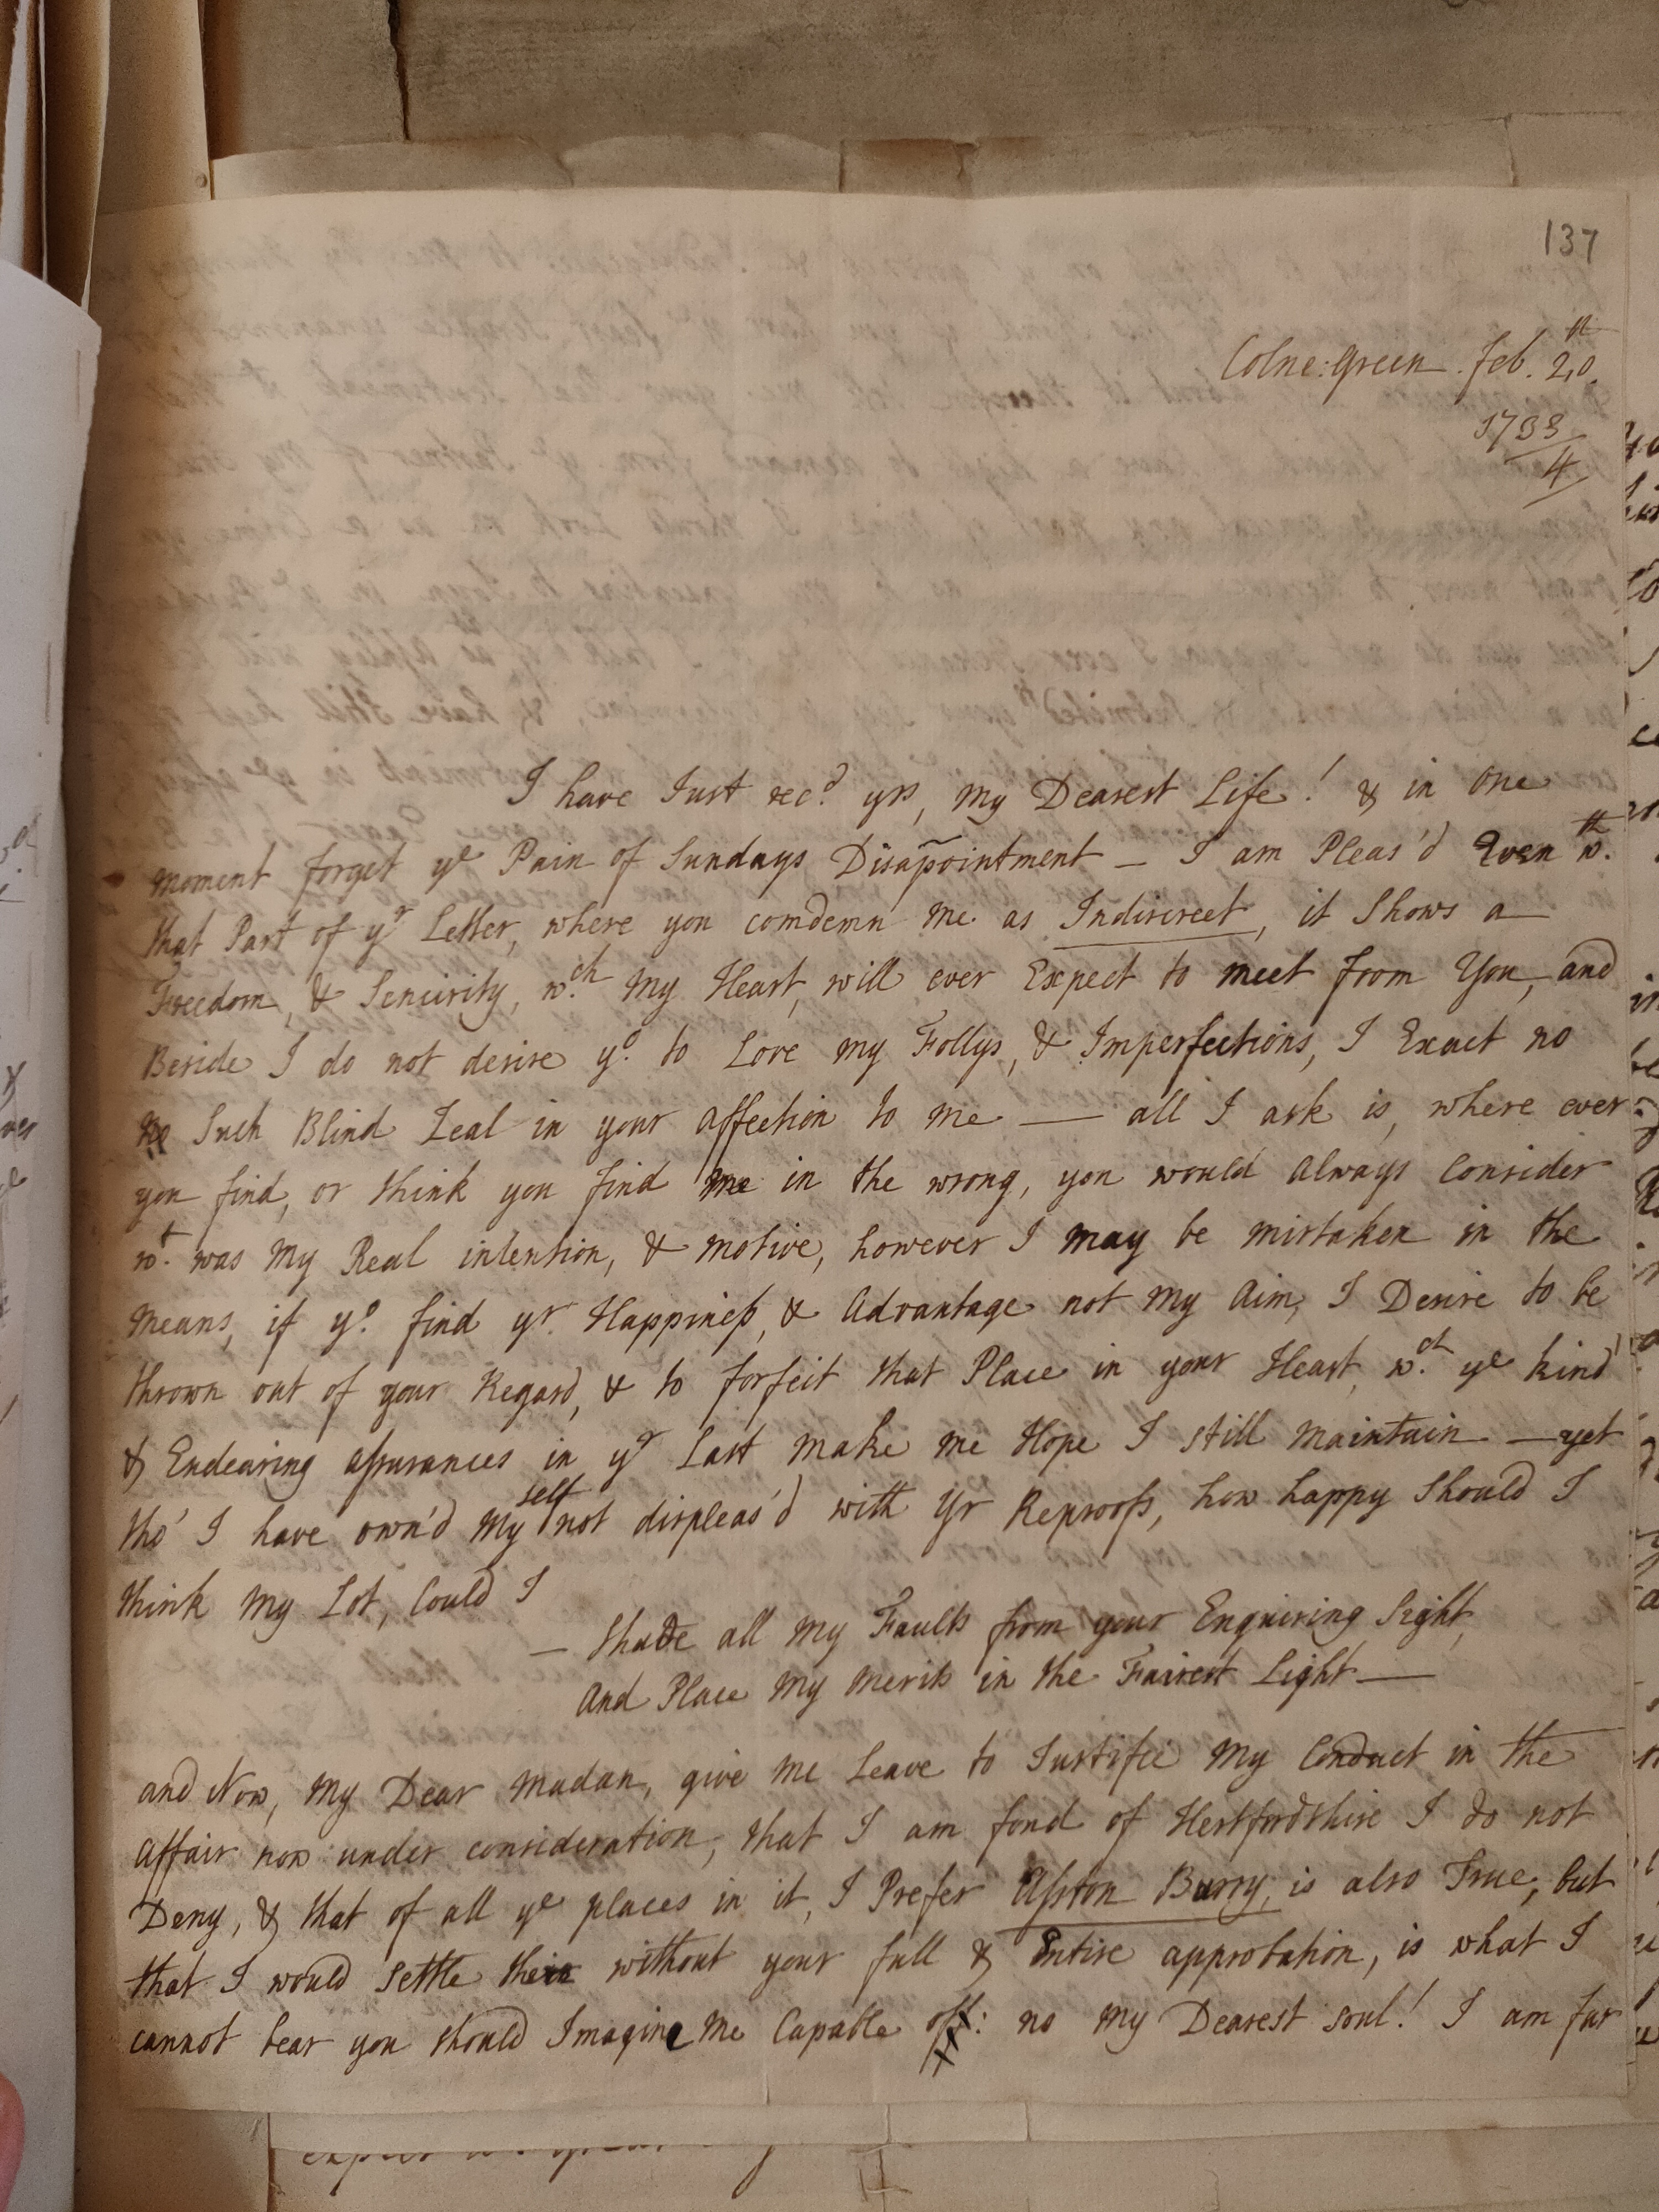 137
Colne:Green. Feb. 20th.
1733/4
I have Just rec.d yrs, my Dearest Life! & in one
moment forget ye Pain of Sundays Disapointment — I am Pleas'd Even wth.
that Part of yr Letter, where you comdemn me as Indiscreet, it Shows a
Freedom, & Sencirity, w.ch my Heart, will ever Expect to meet from You, and
Beside I do not desire yo. to Love my Follys, & Imperfections, I Exact no
no Such Blind Zeal in your affection to me — all I ask is, where ever
you find, or think you find me in the wrong, you would always Consider
wt. was my Real intention, & motive, however I may be mistaken in the
means, if yo. find yr. Happiness, & Advantage not my Aim, I Desire to be
thrown out of your Regard, & to forfeit that Place in your Heart, w.ch ye kind
& Endearing assurances in yr Last make me Hope I still maintain — yet
tho' I have own'd my self not displeas'd with Yr Reproofs, how happy Should I
think my Lot, Could I
— Shade all my Faults from your Enquiring Sight,
And Place my merits in the Fairest Light —
and Now, my Dear Madan, give me Leave to Justifie my Conduct in the
affair now under consideration, that I am fond of Hertfordshire I do not
Deny, & that of all ye places in it, I Prefer Aston Burry, is also True, but
that I would Settle their without your full & Entire approbation, is what I
cannot bear you should Imagine me Capable off: no my Dearest Soul! I am far